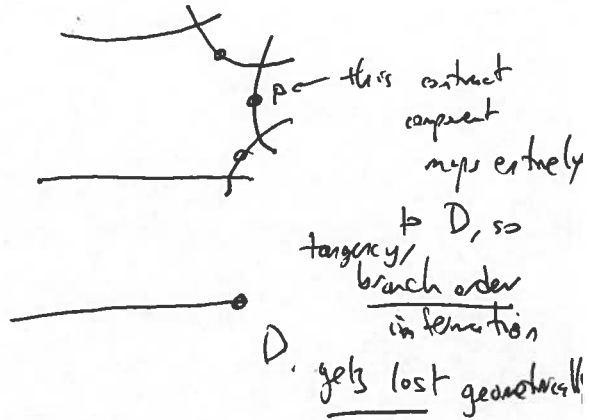 p ← this contract
component
maps entirely
to D, so
tangency/
branch order
information
D. gets lost geometrically